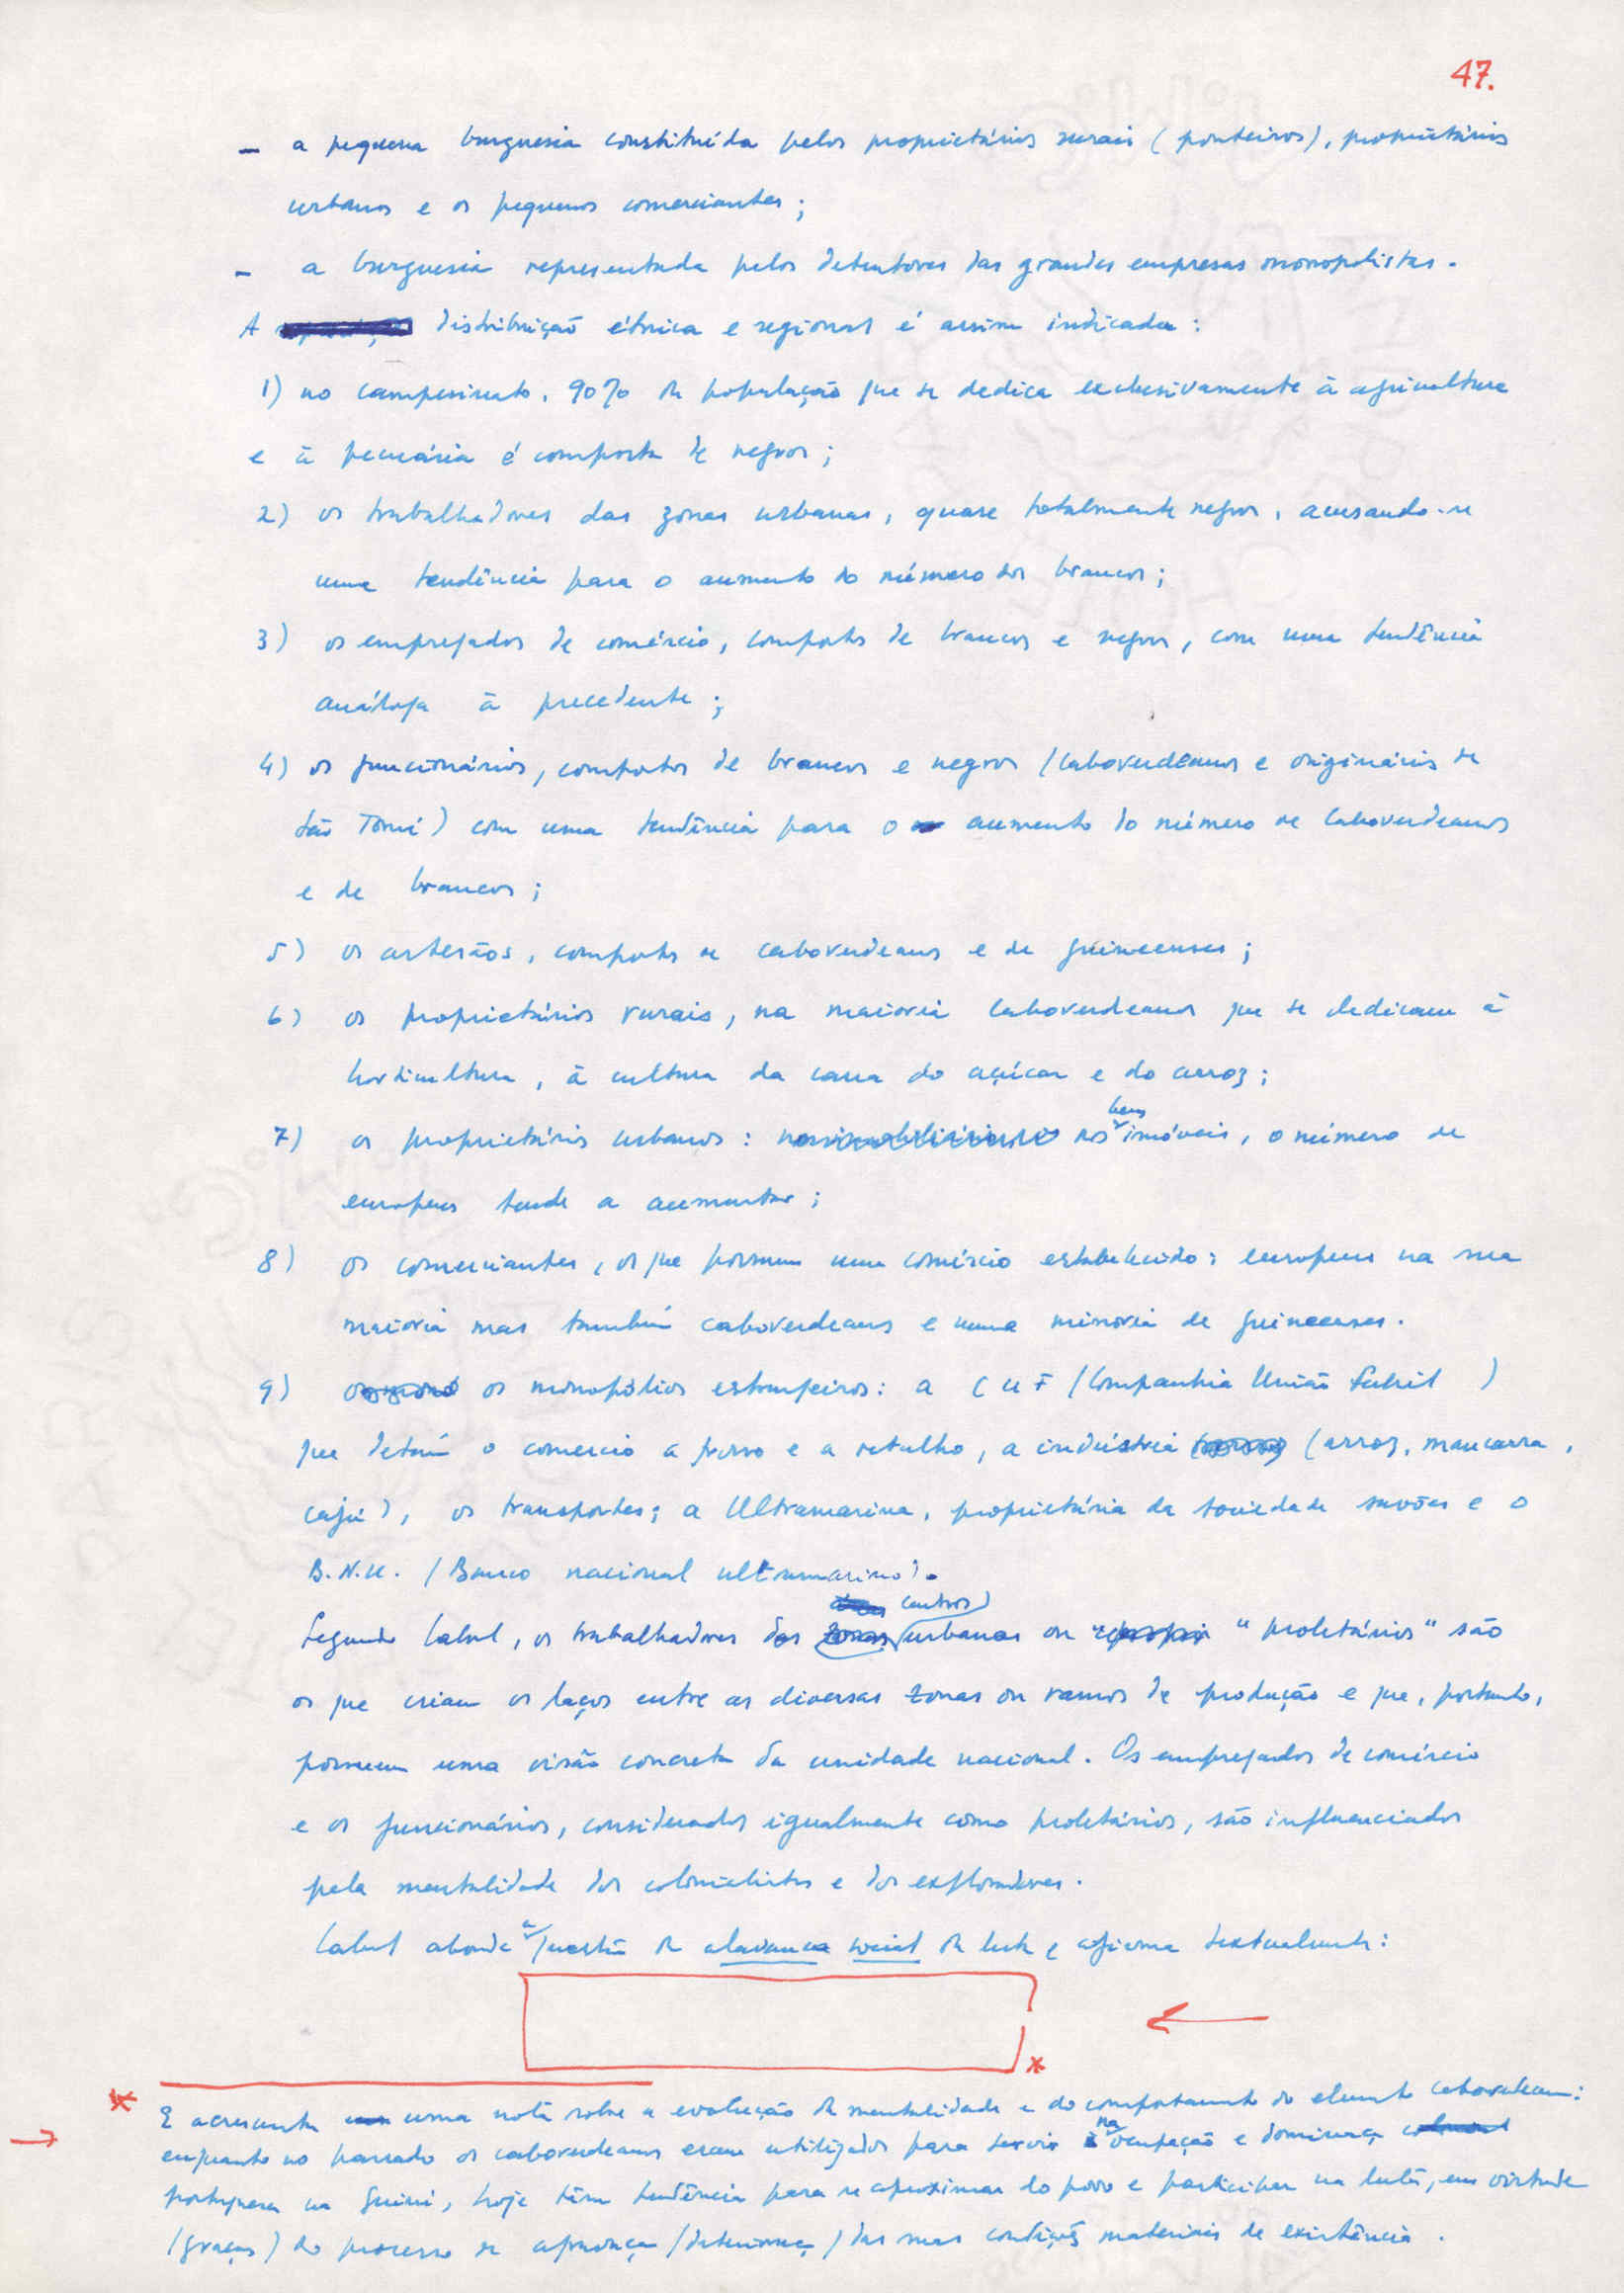 47.
- a pequena burguesia constituída pelos proprietários rurais (ponteiros), proprietários
urbanos e os pequenos comerciantes;
- a burguesia representada pelos detentores das grandes empresas monopolistas.
A distribuição étnica e regional é assim indicada:
1) no campesinato, 90% da população que se dedica exclusivamente à agricultura
e à pecuária é composta de negros;
2) os trabalhadores das zonas urbanas, quase totalmente negros, acusando-se
uma tendência para o aumento do número dos brancos;
3) os empregados de comércio, compostos de brancos e negros, com uma tendência
análoga à precedente;
4) os funcionários, compostos de brancos e negros (caboverdeanos e originários de
São Tomé) com uma tendência para o aumento do número de caboverdeanos
e de brancos;
5) os artesãos, compostos de caboverdeanos e de guineenses;
6) os proprietários rurais, na maioria caboverdeanos que se dedicam à
horticultura, à cultura da cana do açúcar e do arroz;
7) os proprietários urbanos: nos bens imóveis, o número de
europeus tende a aumentar;
8) os comerciantes, os que possuem um comércio estabelecido: europeus na sua
maioria mas também caboverdeanos e uma minoria de guineenses.
9) os monopólios estrangeiros: a CUF (Companhia União Fabril)
que detém o comercio a grosso e a retalho, a indústria (arroz, mancarra,
cajú), os transportes; a Ultramarina, proprietária da sociedade e o
B.N.U. (Banco nacional ultramarino).
Segundo Cabral, os trabalhadores dos centros urbanos ou "proletários" são
os que criam os laços entre as diversas zonas ou ramos de produção e que, portanto,
possuem uma visão concreta da unidade nacional. Os empregados de comércio
e os funcionários, considerados igualmente como proletários, são influenciados
pela mentalidade dos colonialistas e dos exploradores.
Cabral aborda a questão da alavanca social da luta e afirma textualmente:
*
* E acrescenta uma nota sobre a evolução da mentalidade e do comportamento do elemento caboverdeano:
enquanto no passado os caboverdeanos eram utilizados para servir na ocupação e dominação
portuguesa na Guiné, hoje têm tendência para se aproximar do povo e participar na luta, em virtude
(graças) do processo de (determinação) das suas condições materiais de existência.